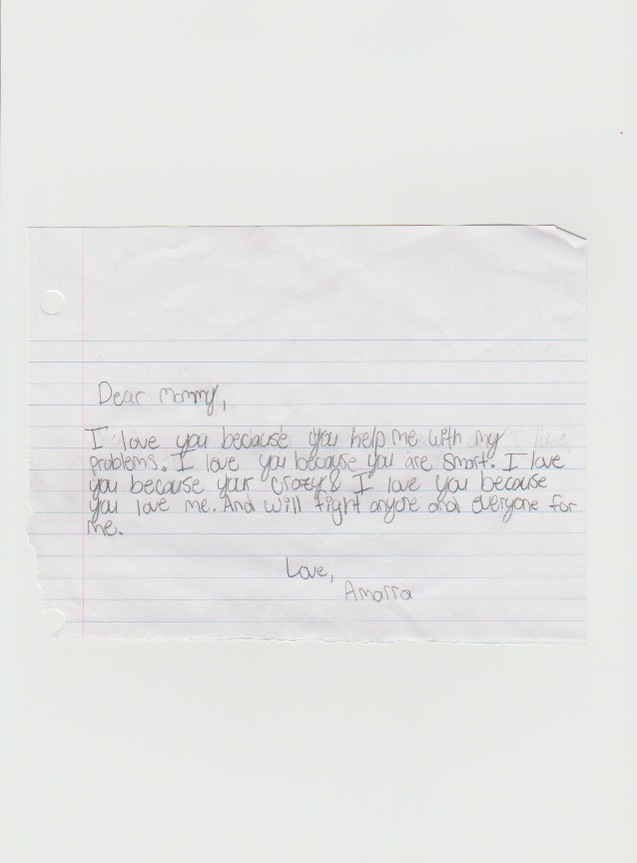 Dear Mommy,
I love you beciause you help me with my
problems. I love you because you are smart. I love
you because your crazy & I love you because
you love me. And will fight anyone and everyone for
me.
Love,
Amarra